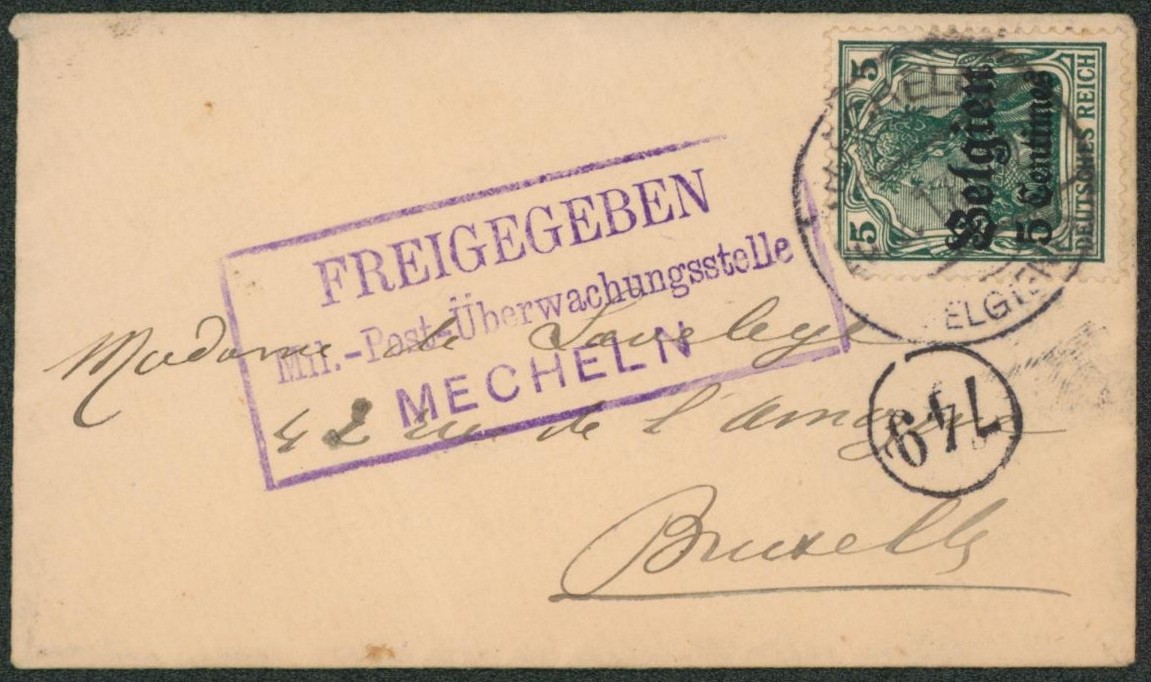 5
5
DEUTSCHES REICH
Belgien
5 Centimes
BELGIEN
FREIGEGEBEN
Mil.-Post-Überwachungsstelle
MECHELN
Madame de Laveleye
42 rue de l'
Bruxelles